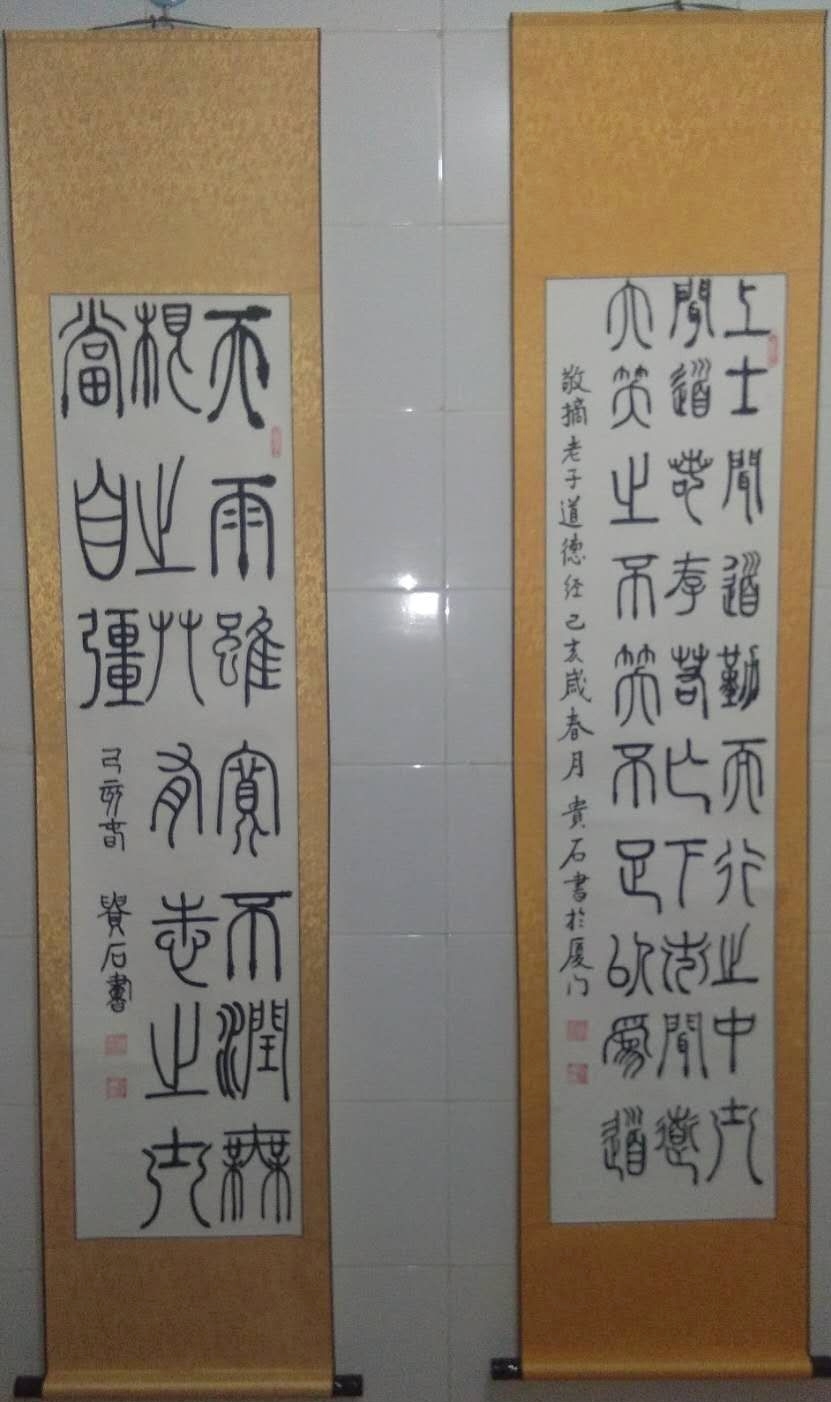 上士聞道勤而行之中士
聞道若存若亡下士聞道
大笑之不笑不足以為道
敬摘老子道德经己亥歲春月貴石書於厦门
天雨雖寬不潤無
根之艸有志之士
當自彊
己亥春 貴石書